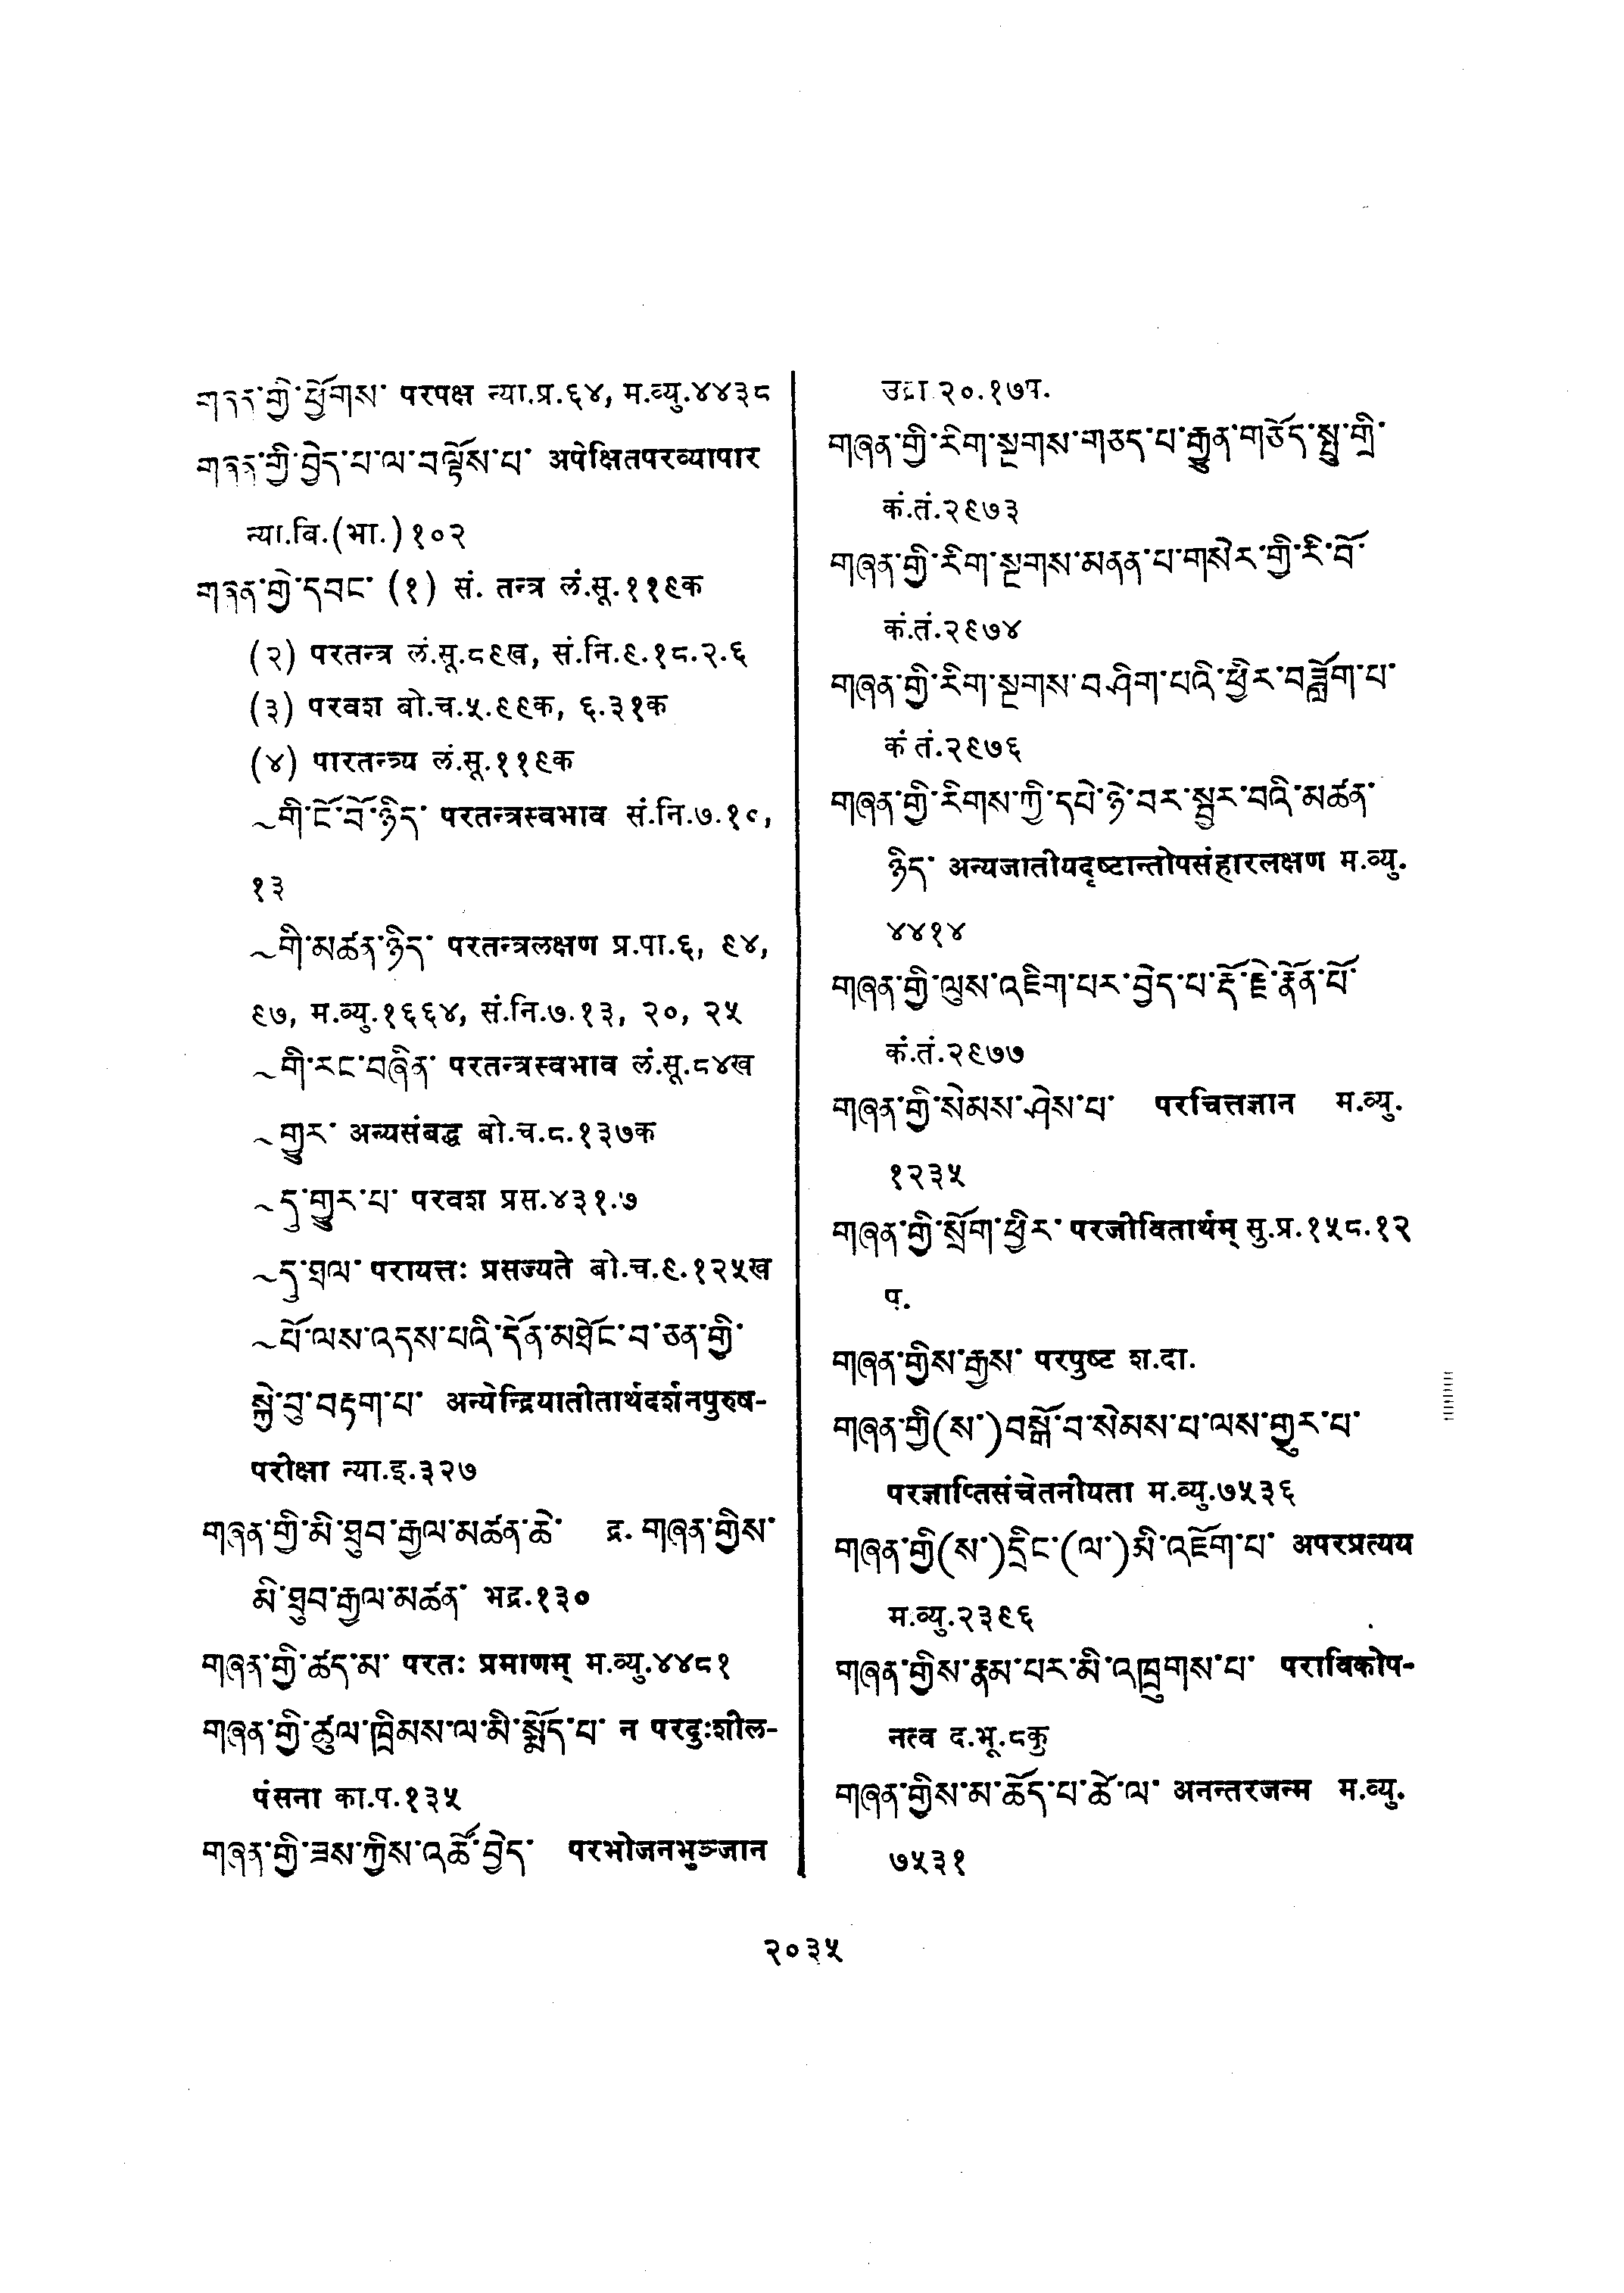 གཞན་གྱི་ཕྱོགས་ परपक्ष न्या.प्र.६४, म.व्यु.४४३८
གཞན་གྱི་བྱེད་པ་ལ་བལྟོས་པ་ अपेक्षितपरव्यापार
न्या.वि.(भा.)१०२
གཞན་གྱི་དབང་ (१) सं. तन्त्र लं.सू.११९क
(२) परतन्त्र लं.सू.८९ख, सं.नि.९.१८.२.६
(३) परवश बो.च.५.९९क, ६.३१क
(४) पारतन्त्र्य लं.सू.११९क
~གི་ངོ་བོ་ཉིད་ परतन्त्रस्वभाव सं.नि.७.१०,
१३
~གི་མཚན་ཉིད་ परतन्त्रलक्षण प्र.पा.६, ९४,
९७, म.व्यु.१६६४, सं.नि.७.१३, २०, २५
~གི་རང་བཞིན་ परतन्त्रस्वभाव लं.सू.८४ख
~གྱུར་ अन्यसंबद्ध बो.च.८.१३७क
~དུ་གྱུར་པ་ परवश प्रस.४३१.७
~དུ་ཐལ་ परायत्तः प्रसज्यते बो.च.९.१२५ख
~པོ་ལས་འདས་པའི་དོན་མཐོང་བ་ཅན་གྱི་
སྐྱེ་བུ་བརྟག་པ་ अन्येन्द्रियातीतार्थदर्शनपुरुष-
परीक्षा न्या.इ.३२७
གཞན་གྱི་མི་ཐུབ་རྒྱལ་མཚན་ཆེ་ द्र. གཞན་གྱིས་
མི་ཐུབ་རྒྱལ་མཚན་ भद्र.१३०
གཞན་གྱི་ཚད་མ་ परतः प्रमाणम् म.व्यु.४४८१
གཞན་གྱི་ཚུལ་ཁྲིམས་ལ་མི་སྨོད་པ་ न परदुःशील-
पंसना का.प.१३५
གཞན་གྱི་ཟས་ཀྱིས་འཚོ་བྱེད་ परभोजनभुञ्जान
उदा.२०.१७प.
གཞན་གྱི་རིག་སྔགས་གཅད་པ་རྒྱུན་གཅོད་སྤུ་གྲི་
कं.तं.२९७३
གཞན་གྱི་རིག་སྔགས་མནན་པ་གསེར་གྱི་རི་བོ་
कं.तं.२९७४
གཞན་གྱི་རིག་སྔགས་བཤིག་པའི་ཕྱིར་བཟློག་པ་
कं तं.२९७६
གཞན་གྱི་རིགས་ཀྱི་དཔེ་ཉེ་བར་སྦྱར་བའི་མཚན་
ཉིད་ अन्यजातीयदृष्टान्तोपसंहारलक्षण म.व्यु.
४४१४
གཞན་གྱི་ལུས་འཇིག་པར་བྱེད་པ་རྡོ་རྗེ་རྣོན་པོ་
कं.तं.२९७७
གཞན་གྱི་སེམས་ཤེས་པ་ परचित्तज्ञान म.व्यु.
१२३५
གཞན་གྱི་སྲོག་ཕྱིར་ परजीवितार्थम् सु.प्र.१५८.१२
प.
གཞན་གྱིས་རྒྱས་ परपुष्ट श.दा.
གཞན་གྱི(ས་)བསྒོ་བ་སེམས་པ་ལས་གྱུར་པ་
परज्ञाप्तिसंचेतनीयता म.व्यु.७५३६
གཞན་གྱི(ས་)དྲིང་(ལ་)མི་འཇོག་པ་ अपरप्रत्यय
म.व्यु.२३९६
གཞན་གྱིས་རྣམ་པར་མི་འཁྲུགས་པ་ पराविकोप-
नत्व द.भू.८कु
གཞན་གྱིས་མ་ཆོད་པ་ཚེ་ལ་ अनन्तरजन्म म.व्यु.
७५३१
२०३५